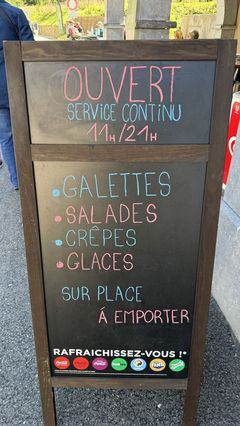 OUVERT
SERVICE CONTINU
11H/21H
• GALETTES
• SALADES
• CRÊPES
• GLACES
SUR PLACE
Á EMPORTER
RAFRAICHISSEZ-VOUS !*